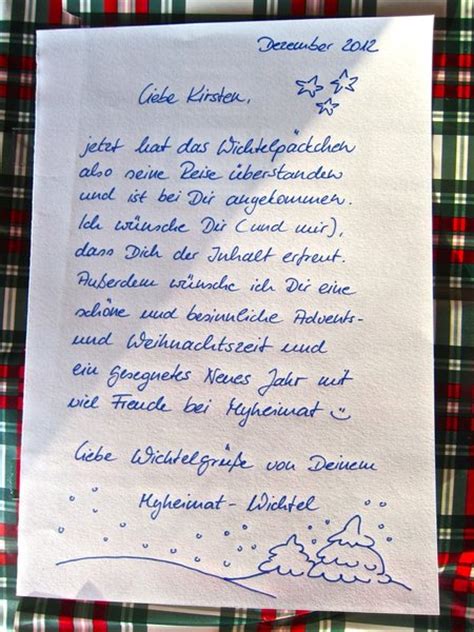 Dezember 2012
Liebe Kirsten,
jetzt hat das Wichtelpäckchen
also seine Reise überstanden
und ist bei Dir angekommen.
Ich wünsche Dir (und mir),
dass Dich der Inhalt erfreut.
Außerdem wünsche ich Dir eine
schöne und besinnliche Advents-
und Weihnachtszeit und
ein gesegnetes Neues Jahr mit
viel Freude bei Myheimat ☺
Liebe Wichtelgrüße von Deinem
Myheimat-Wichtel